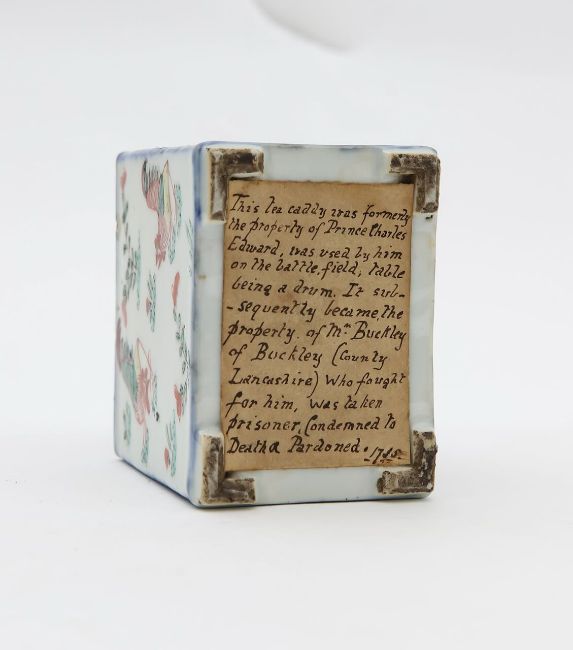 This tea caddy was formerly
the property of Prince Charles
Edward, was used by him
on the battle, field, table
being a drum. It sub-
-sequently became, the
property. of Mr. Buckley
of Buckley (County
Lancashire) Who fought
for him, was taken
prisoner, Condemned to
Death & Pardoned.